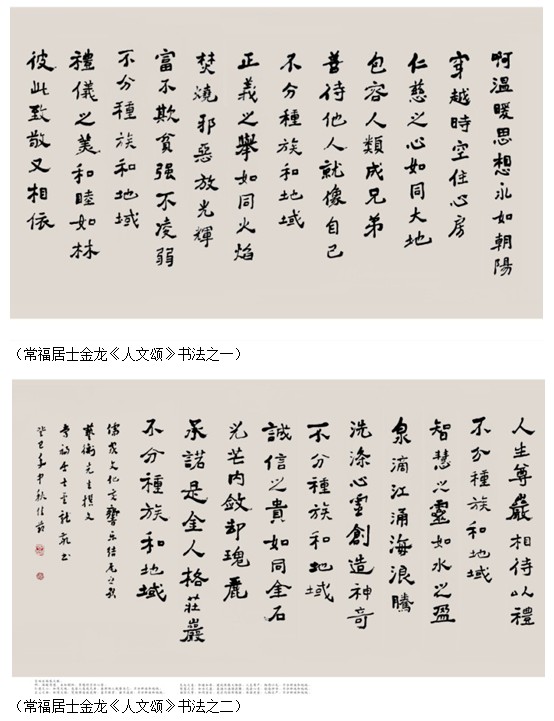 啊溫暖思想永如朝陽
穿越時空住心房
仁慈之心如同大地
包容人類成兄弟
善待他人就像自己
不分種族和地域
正義之舉如同火焰
焚燒邪惡放光輝
富不欺貧强不凌弱
不分種族和地域
禮儀之美和睦如林
彼此致敬又相依
（常福居士金龙《人文颂》书法之一）
人生尊嚴相待以禮
不分種族和地域
智慧之靈如水之盈
泉滴江涌海浪騰
洗滌心靈創造神奇
不分種族和地域
誠信之貴如同金石
光芒内斂却瑰麗
承諾是全人格莊嚴
不分種族和地域
儒家文化交響樂結尾之歌
先生撰文
常福居士金龍敬書
癸巳年中秋佳節
（常福居士金龙《人文颂》书法之二）